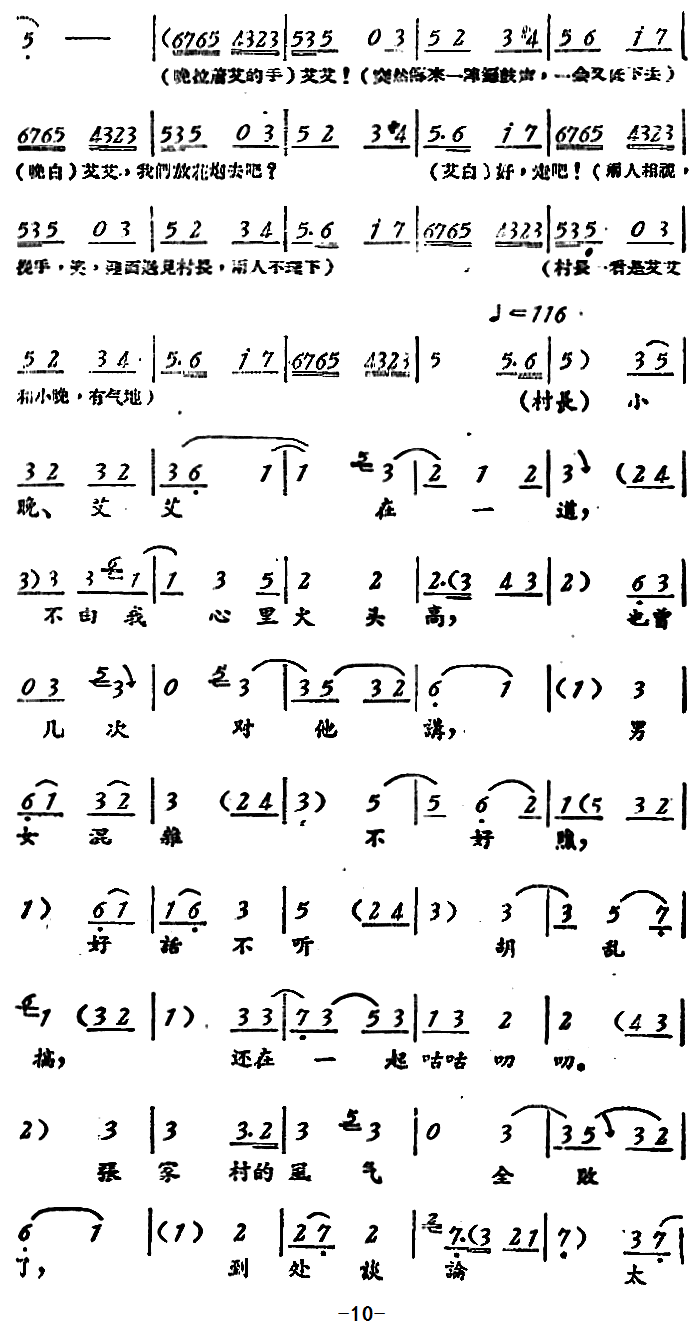 5 — — (6765 4323 535 0 3 5 2 3 4 5 6 i 7
(晚拉着艾的手)艾艾!(突然傳来一陣鑼鼓声,一会又低下去)
6765 4323 535 0 3 5 2 3 4 5. 6 i 7 6765 4323
(晚白)艾艾,我們放花炮去吧? (艾白)好,走吧!(兩人相視,
535 0 3 5 2 3 4 5. 6 i 7 6765 4323 535 0 3
手,笑,迎面遇見村長,兩人不理下) (村長一看是艾艾
♩=116
5 2 3 4 5. 6 i 7 6765 4323 5 5. 6 5) 3 5
和小晚,有气地) (村長)小
3 2 3 2 3 6 1 1 5 3 2 1 2 3 (2 4
晚、艾艾在一道,
3) 3 3 6 1 1 3 5 2 2 2. (3 4 3 2) 6 3
不由我心里火头高,也曾
0 3 5 3 0 5 3 3 5 3 2 6 1 (1) 3
几次对他講,男
6 1 3 2 3 (2 4 3) 5 5 6 2 1 (5 3 2
女混雜不好瞧,
1) 6 1 1 6 3 5 (2 4 3) 3 3 5 7
好話不听胡乱
6 1 (3 2 1) 3 3 7 3 5 3 1 3 2 2 (4 3
搞,还在一起咕咕叨叨。
2) 3 3 3. 2 3 5 3 0 3 3 5 3 2
張家村的風气全敗
6 1 (1) 2 2 7 2 2 7. (3 2 1 7) 3 7
了,到处談論太
-10-